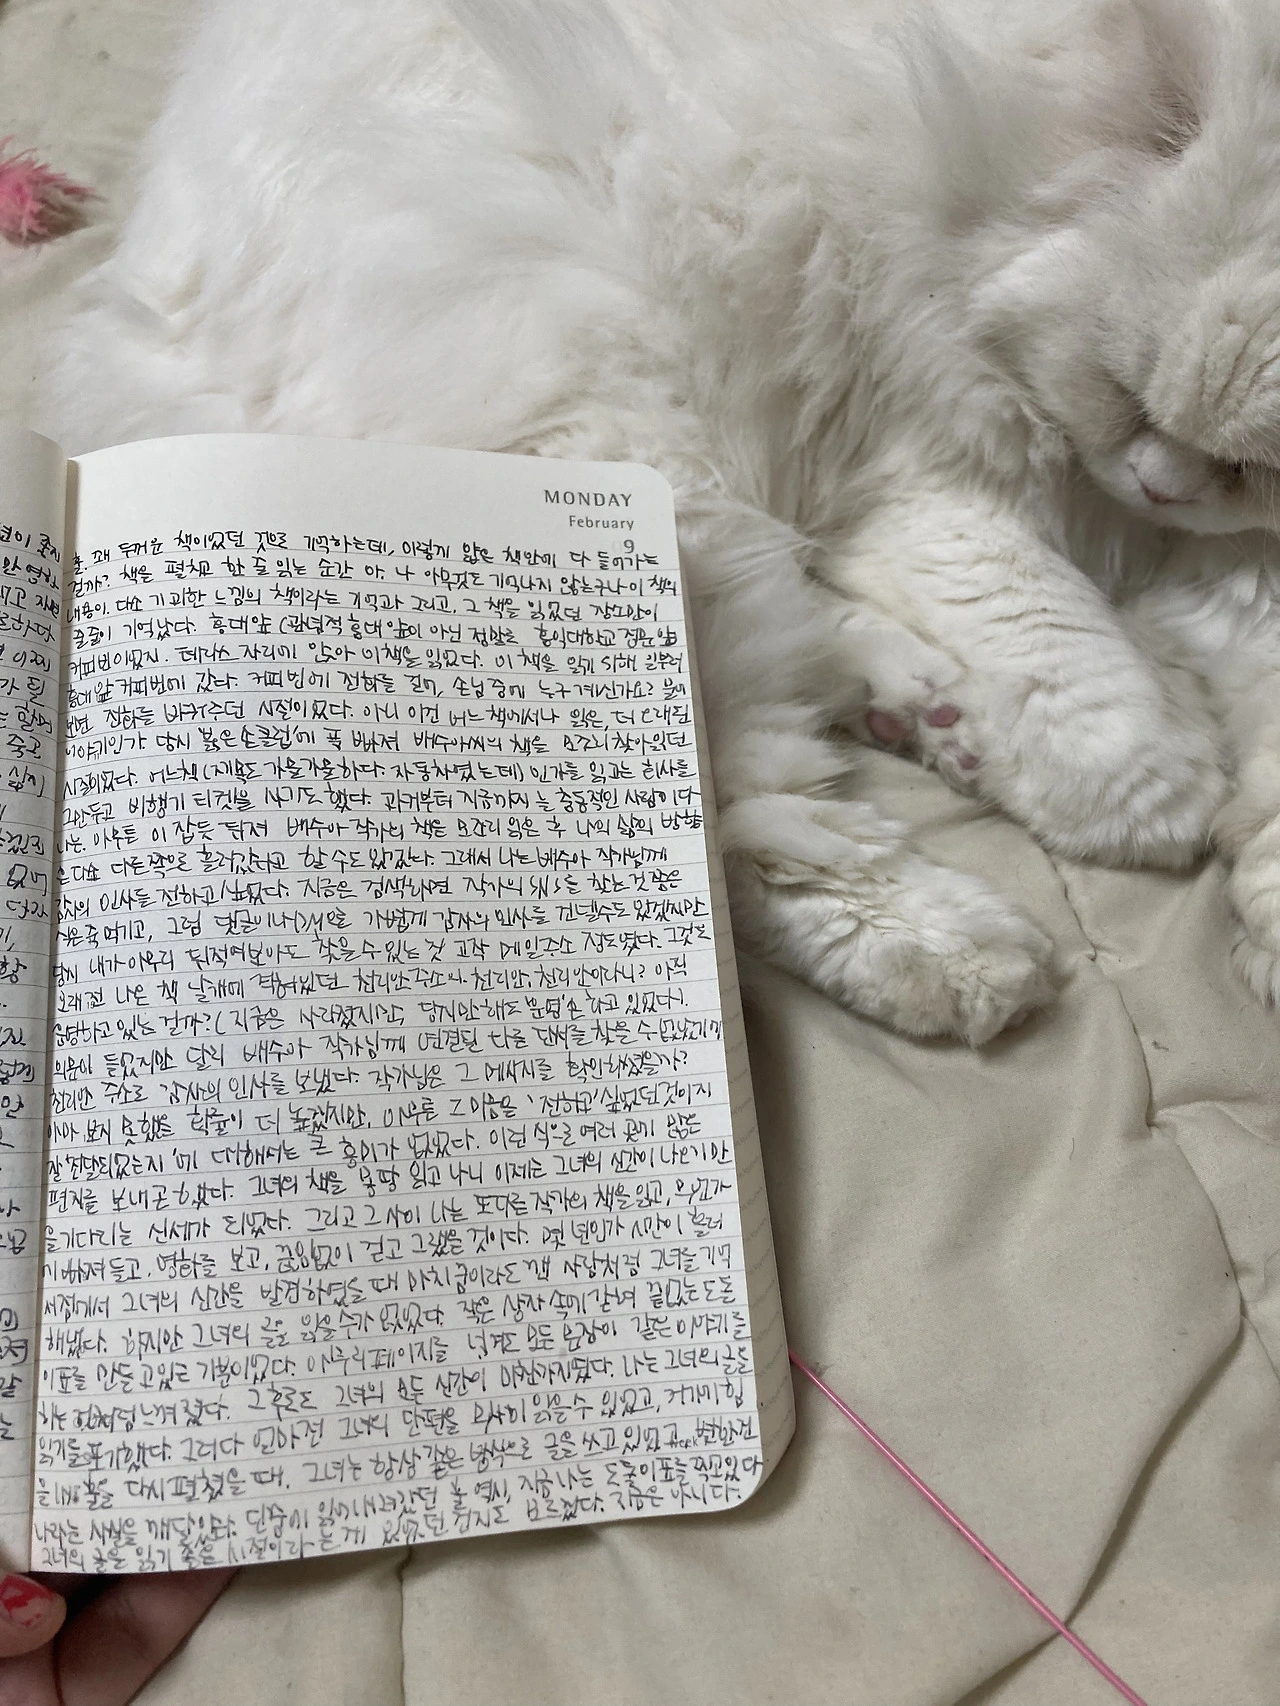 MONDAY
February
9
훌. 꽤 두꺼운 책이었던 것으로 기억하는데, 이렇게 얇은 책안에 다 들어가는
걸까? 책을 펼치고 한 줄 읽는 순간 아, 나 아무것도 기억나지 않는구나 이 책의
내용이. 다소 기괴한 느낌의 책이라는 기억과 그리고, 그 책을 읽었던 장소만이
줄줄이 기억났다. 홍대앞 (관념적 홍대앞이 아닌 정말로 홍익대학교 정문 앞
커피빈이었지. 테라스 자리에 앉아 이책을 읽었다. 이 책을 읽기 위해 일부러
홍대앞 커피빈에 갔다. 커피빈에 전화를 걸어, 손님 중에 누구 계신가요? 물어
보면 전화를 바꿔주던 시절이었다. 아니 이건 어느 책에서나 읽은, 더 오래된
이야기인가. 당시 붉은손클럽에 푹 빠져 배수아씨의 책을 모조리 찾아읽던
시절이었다. 어느책 (제목도 가물가물하다. 자동차였는데) 인가를 읽고는 회사를
그만두고 비행기 티켓을 사기도 했다. 과거부터 지금까지 늘 충동적인 사람이다
나는. 아무튼 이 잡듯 뒤져 배수아 작가의 책을 모조리 읽은 후 나의 삶의 방향
은 다소 다른쪽으로 흘러갔다고 할 수도 있겠다. 그래서 나는 배수아 작가님께
감사의 인사를 전하고 싶었다. 지금은 검색하면 작가의 SNS를 찾는 것 쯤은
식은 죽 먹기고, 그럼 댓글이나 DM으로 가볍게 감사의 인사를 건넬수도 있겠지만
당시 내가 아무리 뒤적여보아도 찾을 수 있는 것 고작 메일주소 정도였다. 그것도
오래전 나온 책 날개에 적혀있던 천리안 주소의. 천리안, 천리안이라니? 아직
운영하고 있는 걸까? (지금은 사라졌지만, 당시만해도 운영은 하고 있었다).
의문이 들었지만 달리 배수아 작가님께 연결된 다른 단서를 찾을 수 없었기에
천리안 주소로 감사의 인사를 보냈다. 작가님은 그 메세지를 확인하셨을까?
아마 보지 못했을 확률이 더 높겠지만, 아무튼 그 마음은 '전하고' 싶었던 것이지
잘 '전달되었는지'에 대해서는 큰 흥미가 없었다. 이런 식으로 여러 곳에 많은
편지를 보내곤 했다. 그녀의 책을 몽땅 읽고 나니 이제는 그녀의 신간이 나오기만
을 기다리는 신세가 되었다. 그리고 그 사이 나는 또다른 작가의 책을 읽고, 무언가
에 빠져들고, 영화를 보고, 끊임없이 걷고 그랬을 것이다. 몇 년인가 시간이 흘러
서점에서 그녀의 신간을 발견하였을 때 마치 꿈이라도 깬 사람처럼 그녀를 기억
해냈다. 하지만 그녀의 글을 읽을수가 없었다. 작은 상자 속에 갇혀 끝없는 도돌
이표를 만들고 있는 기분이었다. 아무리 페이지를 넘겨도 모든 문장이 같은 이야기를
하는 것처럼 느껴졌다. 그 후로도 그녀의 모든 신간이 마찬가지였다. 나는 그녀의 글을
읽기를 포기했다. 그러다 얼마전 그녀의 단편을 무사히 읽을 수 있었고, 거기에 힘
을 내어 훌을 다시 펼쳤을 때, 그녀는 항상 같은 방식으로 글을 쓰고 있었고 변한건
나라는 사실을 깨달았다. 단숨에 읽어내려갔던 훌 역시, 지금 나는 도돌이표를 찍고있다
그녀의 글을 읽기 좋은 시절이라는 게 있었던 건지도 모르겠다. 지금은 아니다.